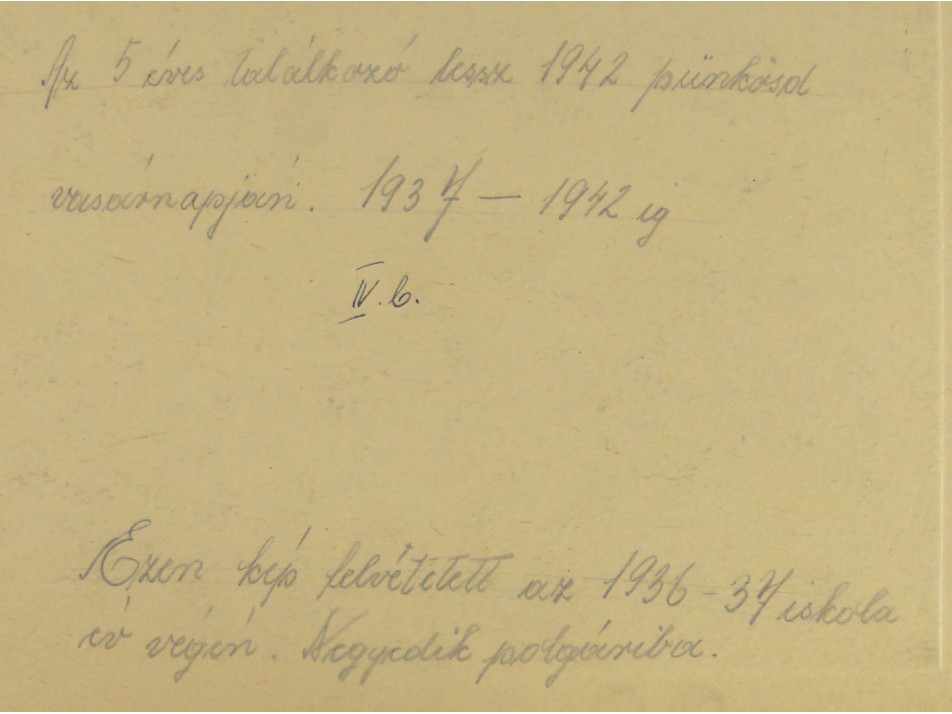 Az 5 éves találkozó lessz 1942 pünkösd
vasárnapján. 1937 — 1942 ig
IV. b.
Ezen kép felvétetett az 1936-37 iskola
év végén. Negyedik polgáriba.